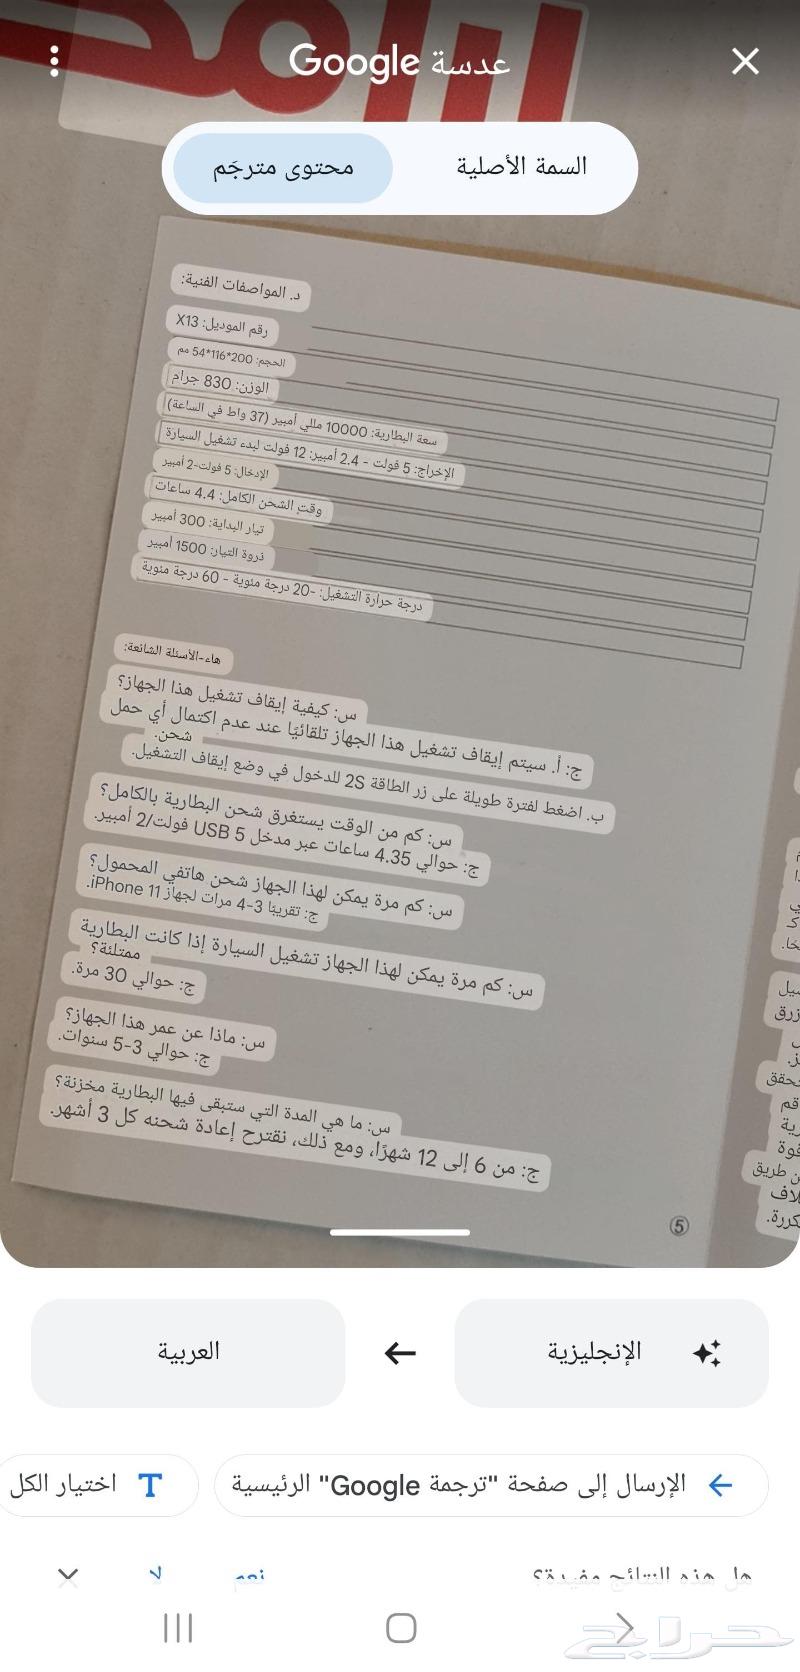 عدسة Google
السمة الأصلية
محتوى مترجَم
د. المواصفات الفنية:
رقم الموديل: X13
الحجم: 200*116*54 مم
الوزن: 830 جرام
سعة البطارية: 10000 مللي أمبير (37 واط في الساعة)
الإخراج: 5 فولت - 2.4 أمبير: 12 فولت لبدء تشغيل السيارة
الإدخال: 5 فولت-2 أمبير
وقت الشحن الكامل: 4.4 ساعات
تيار البداية: 300 أمبير
ذروة التيار: 1500 أمبير
درجة حرارة التشغيل: -20 درجة مئوية - 60 درجة مئوية
هاء-الأسئلة الشائعة:
س: كيفية إيقاف تشغيل هذا الجهاز؟
ج: أ. سيتم إيقاف تشغيل هذا الجهاز تلقائيًا عند عدم اكتمال أي حمل
شحن.
ب. اضغط لفترة طويلة على زر الطاقة 2S للدخول في وضع إيقاف التشغيل.
س: كم من الوقت يستغرق شحن البطارية بالكامل؟
ج: حوالي 4.35 ساعات عبر مدخل USB 5 فولت/2 أمبير.
س: كم مرة يمكن لهذا الجهاز شحن هاتفي المحمول؟
ج: تقريبًا 3-4 مرات لجهاز iPhone 11.
س: كم مرة يمكن لهذا الجهاز تشغيل السيارة إذا كانت البطارية
ممتلئة؟
ج: حوالي 30 مرة.
س: ماذا عن عمر هذا الجهاز؟
ج: حوالي 3-5 سنوات.
س: ما هي المدة التي ستبقى فيها البطارية مخزنة؟
ج: من 6 إلى 12 شهرًا، ومع ذلك، نقترح إعادة شحنه كل 3 أشهر.
5
الإنجليزية
العربية
الإرسال إلى صفحة "ترجمة Google" الرئيسية
اختيار الكل
هل هذه النتائج مفيدة؟
نعم
لا
حراج